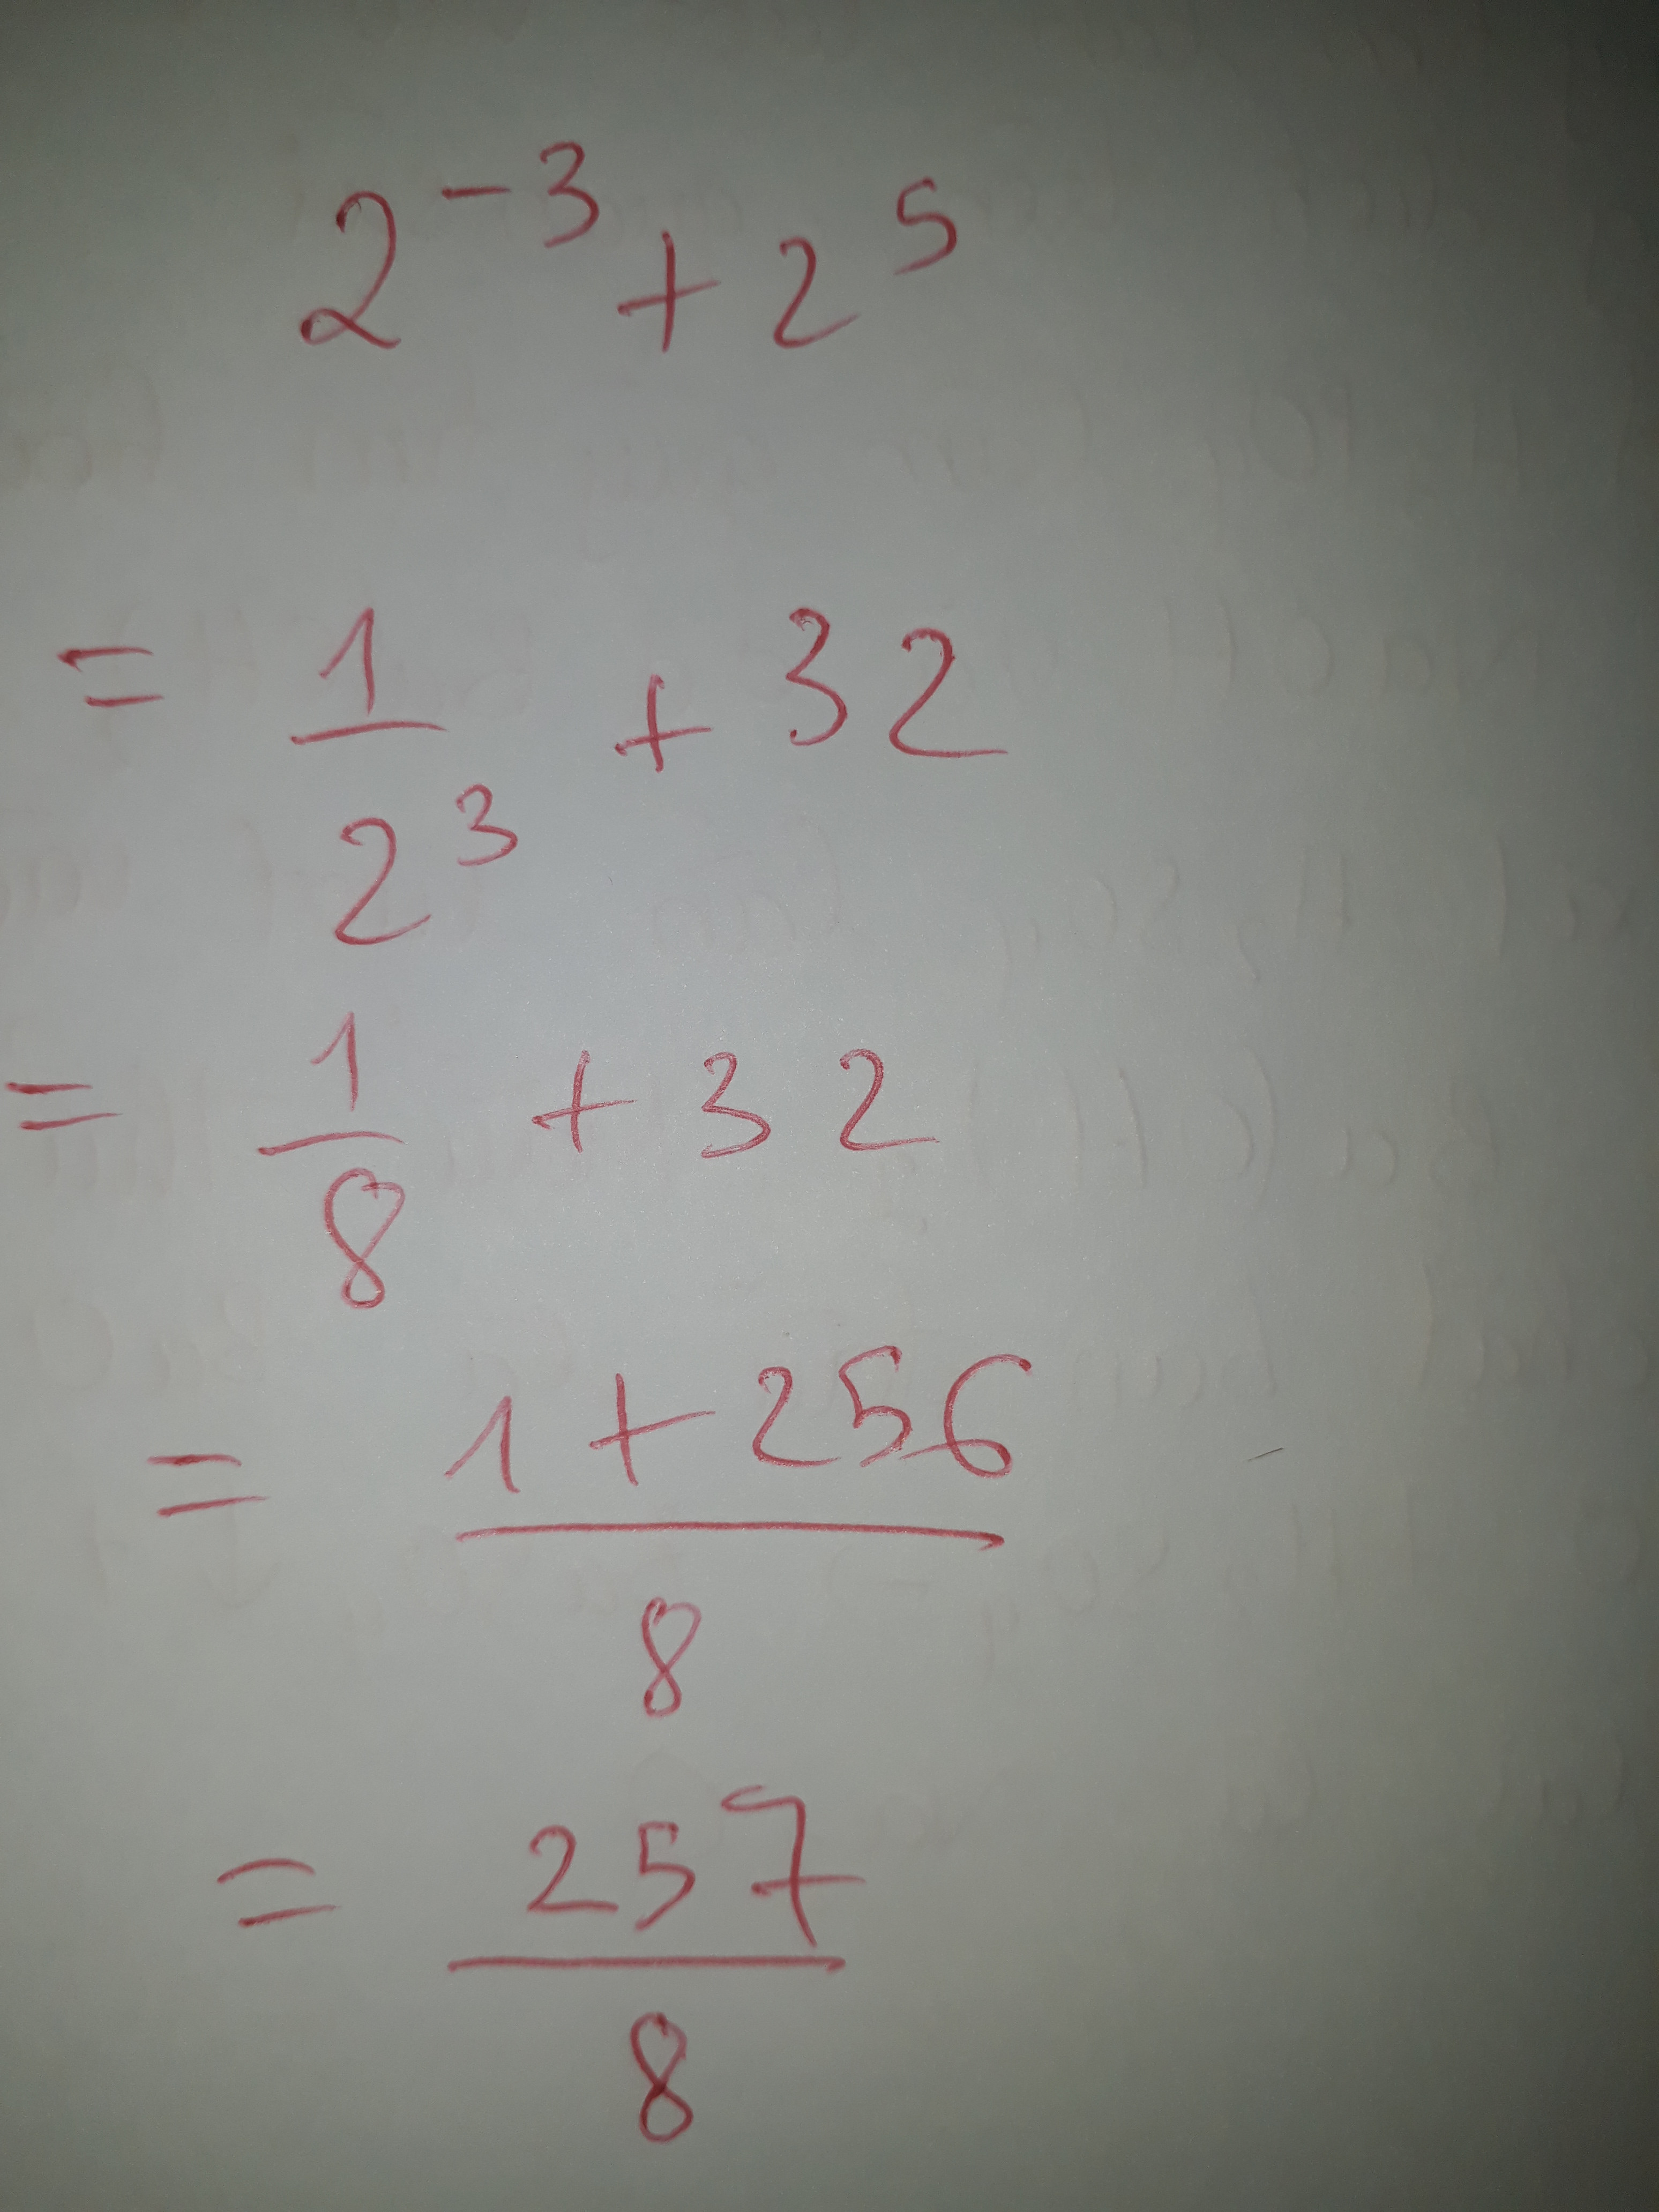 2⁻³ + 2⁵
= 1/2³ + 32
= 1/8 + 32
= (1 + 256)/8
= 257/8